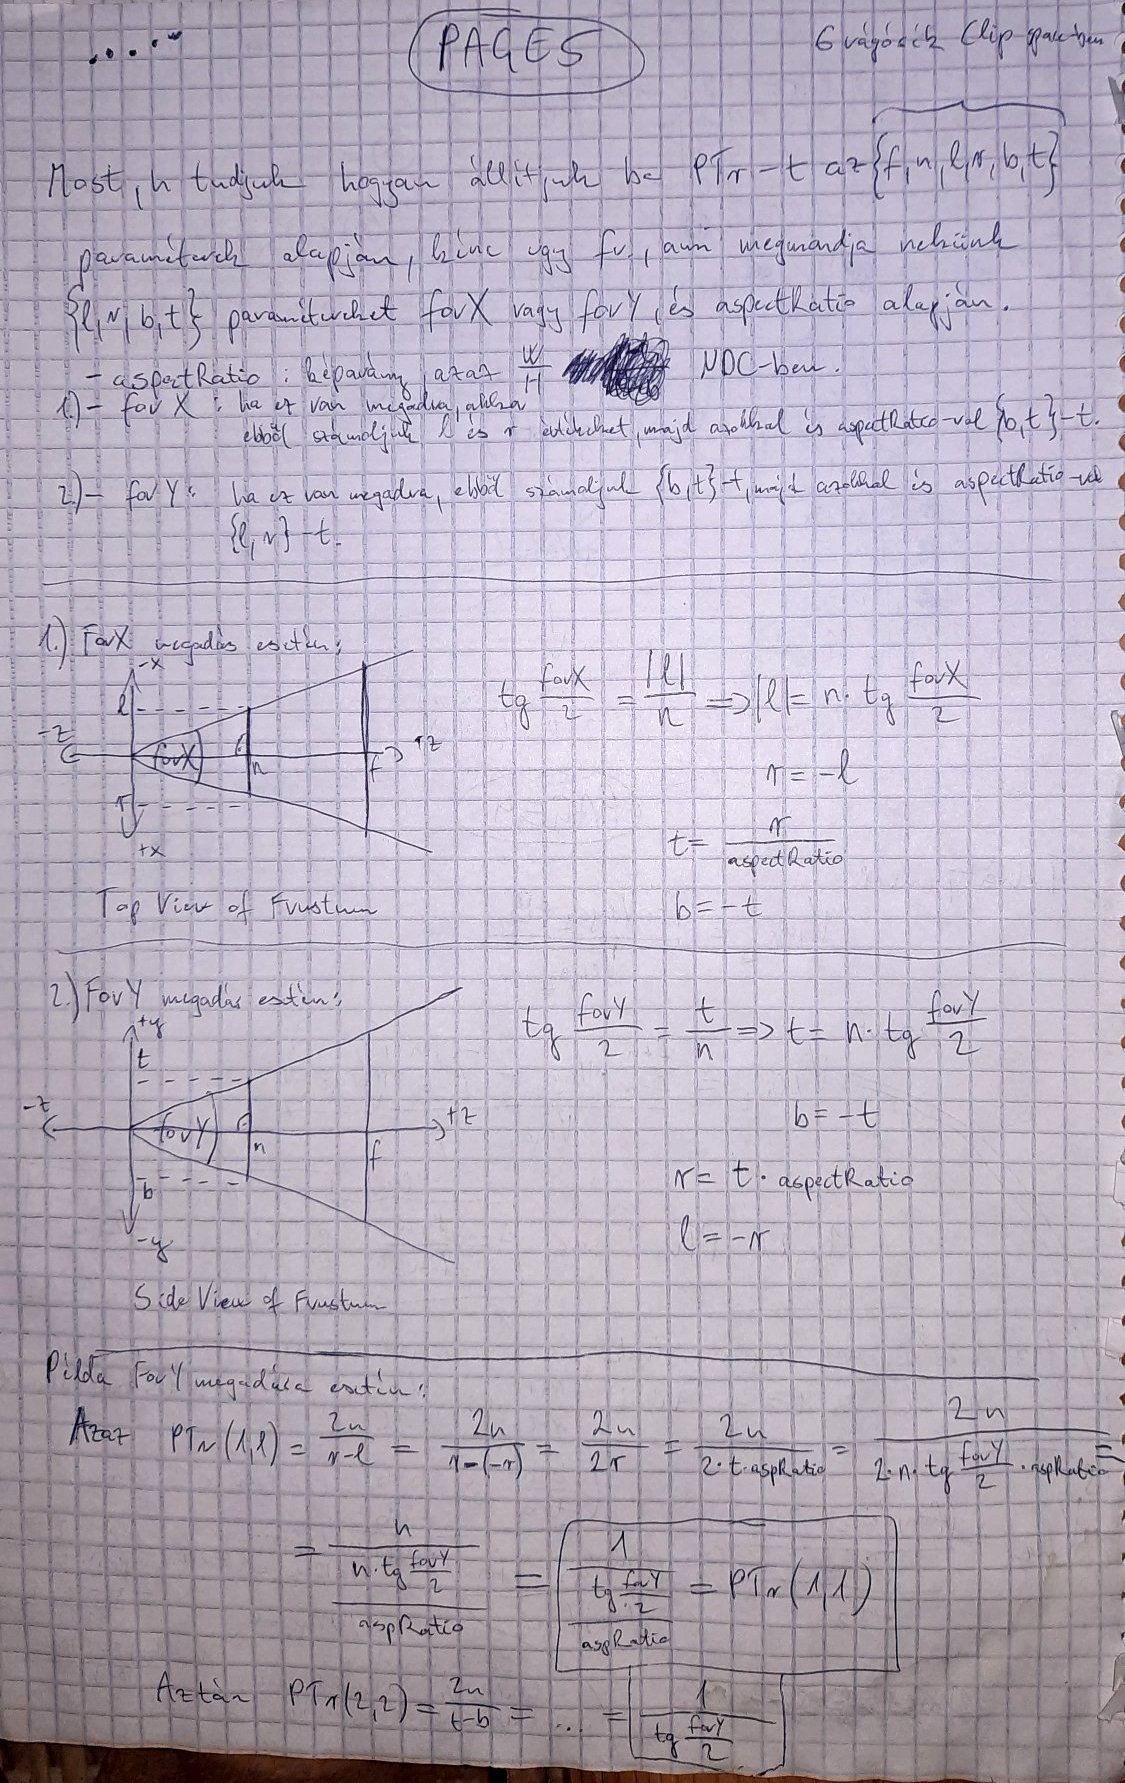 PAGE 5
6 vágósík Clip-space-ben
Most, h tudjuk hogyan állítjuk be PTr-t az {f, n, l, r, b, t}
paraméterek alapján, kéne egy fv., ami megmondja nekünk
{l, r, b, t} paramétereket fovX vagy fovY, és aspectRatio alapján.
- aspectRatio : képarány, azaz W/H NDC-ben.
1.) - fov X : ha ez van megadva, akkor
ebből számoljuk l és r értékeket, majd azokkal és aspectRatio-val {b, t}-t.
2.) - fov Y : ha ez van megadva, ebből számoljuk {b, t}-t, majd azokkal és aspectRatio-val
{l, r}-t.
1.) FovX megadás esetén:
-x
l
-z
fovX
n
f
+z
r
+x
Top View of Frustum
tg fovX/2 = |l|/n => |l| = n · tg fovX/2
r = -l
t = r/aspectRatio
b = -t
2.) FovY megadás esetén:
+y
t
-z
fovY
n
f
+z
b
-y
Side View of Frustum
tg fovY/2 = t/n => t = n · tg fovY/2
b = -t
r = t · aspectRatio
l = -r
Példa FovY megadása esetén:
Azaz PTr(1,1) = 2n/(r-l) = 2n/(r-(-r)) = 2n/2r = 2n/(2·t·aspRatio) = 2n/(2·n·tg fovY/2 · aspRatio) =
= n/(n·tg fovY/2)/aspRatio = 1/(tg fovY/2)/aspRatio = PTr(1,1)
Aztán PTr(2,2) = 2n/(t-b) = ... = 1/(tg fovY/2)